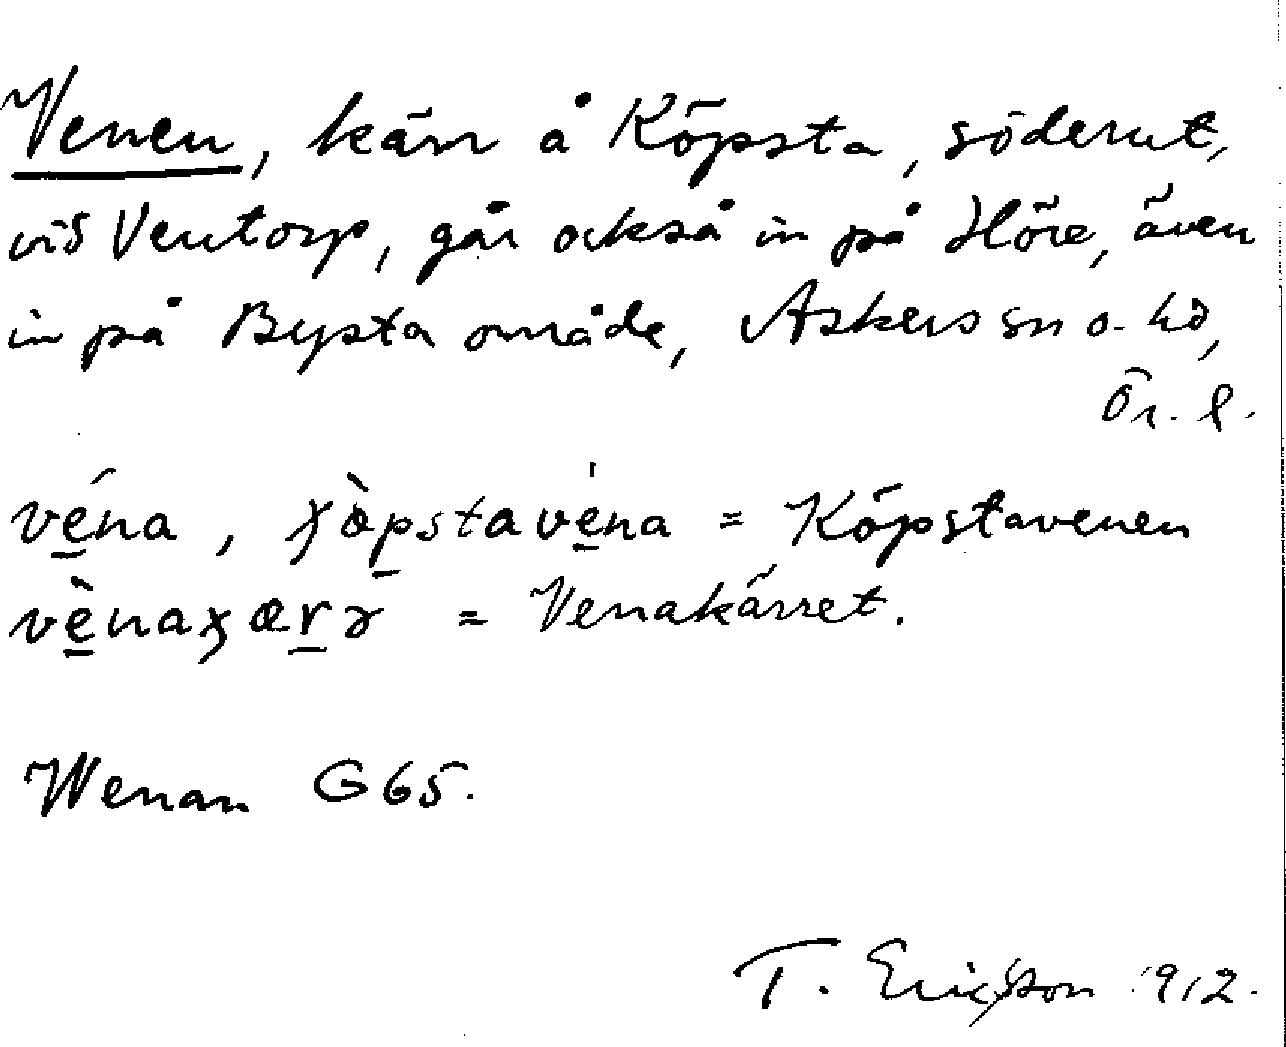 Venen, kärr å Köpsta, söderut,
vid Ventorp, går också in på Höre, även
in på Bysta område, Askers sn o. hd,
Ör. l.
véna, χòpstavéna = Köpstavenen
vènaχærɤ = Venakärret.
Wenan G 65.
T. Ericsson 1912.